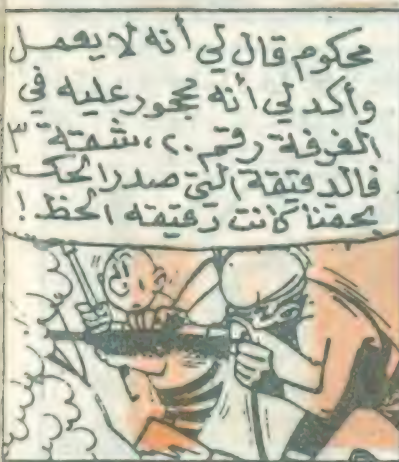 محكوم قال لي أنه لا يعمل
وأكد لي أنه محجور عليه في
الغرفة رقم ٢٠، شقة ٣
فالدقيقة التي صدر الحكم
بحقنا كانت دقيقة الحظ!